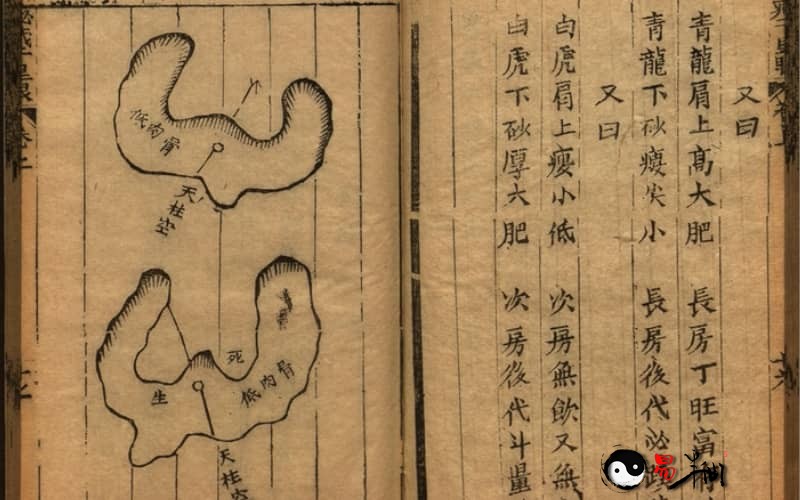 又曰
青龍肩上高大肥 長房丁旺富
青龍下砂瘦尖小 長房後代必
又曰
白虎肩上瘦小低 次房無飲又無
白虎下砂厚大肥 次房後代斗量
低肉骨
天柱空
死
生
低肉骨
天柱空
卷二
易